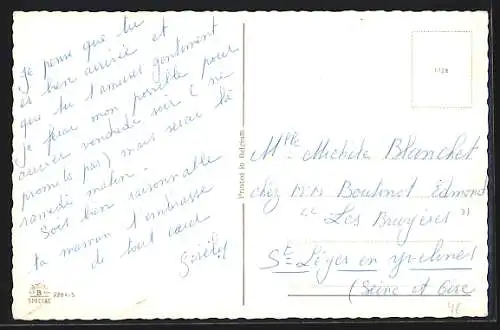 Je pense que tu
es bien arrivée et
que tu t'amuses gentiment
je ferai mon possible pour
arriver vendredi soir (ne
promets pas) mais serai là
samedi matin.
Sois bien raisonnable
ta maman t'embrasse
de tout cœur
Printed in Belgium
1128
Mlle Michele Blanchet
chez MM Boutinot Edmond
"Les Bruyères"
St Léger en yvelines
(Seine et Oise
SPECIAL